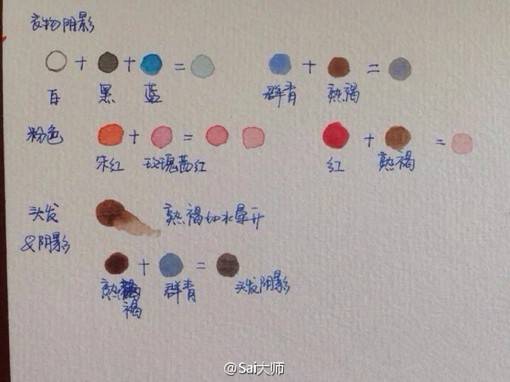 衣物阴影
+ + =
白 黑 蓝
+ =
群青 熟褐
粉色
+ =
朱红 玫瑰茜红
+ =
红 熟褐
头发
&阴影
熟褐加水晕开
+ =
熟褐 群青 头发阴影
@Sai大师